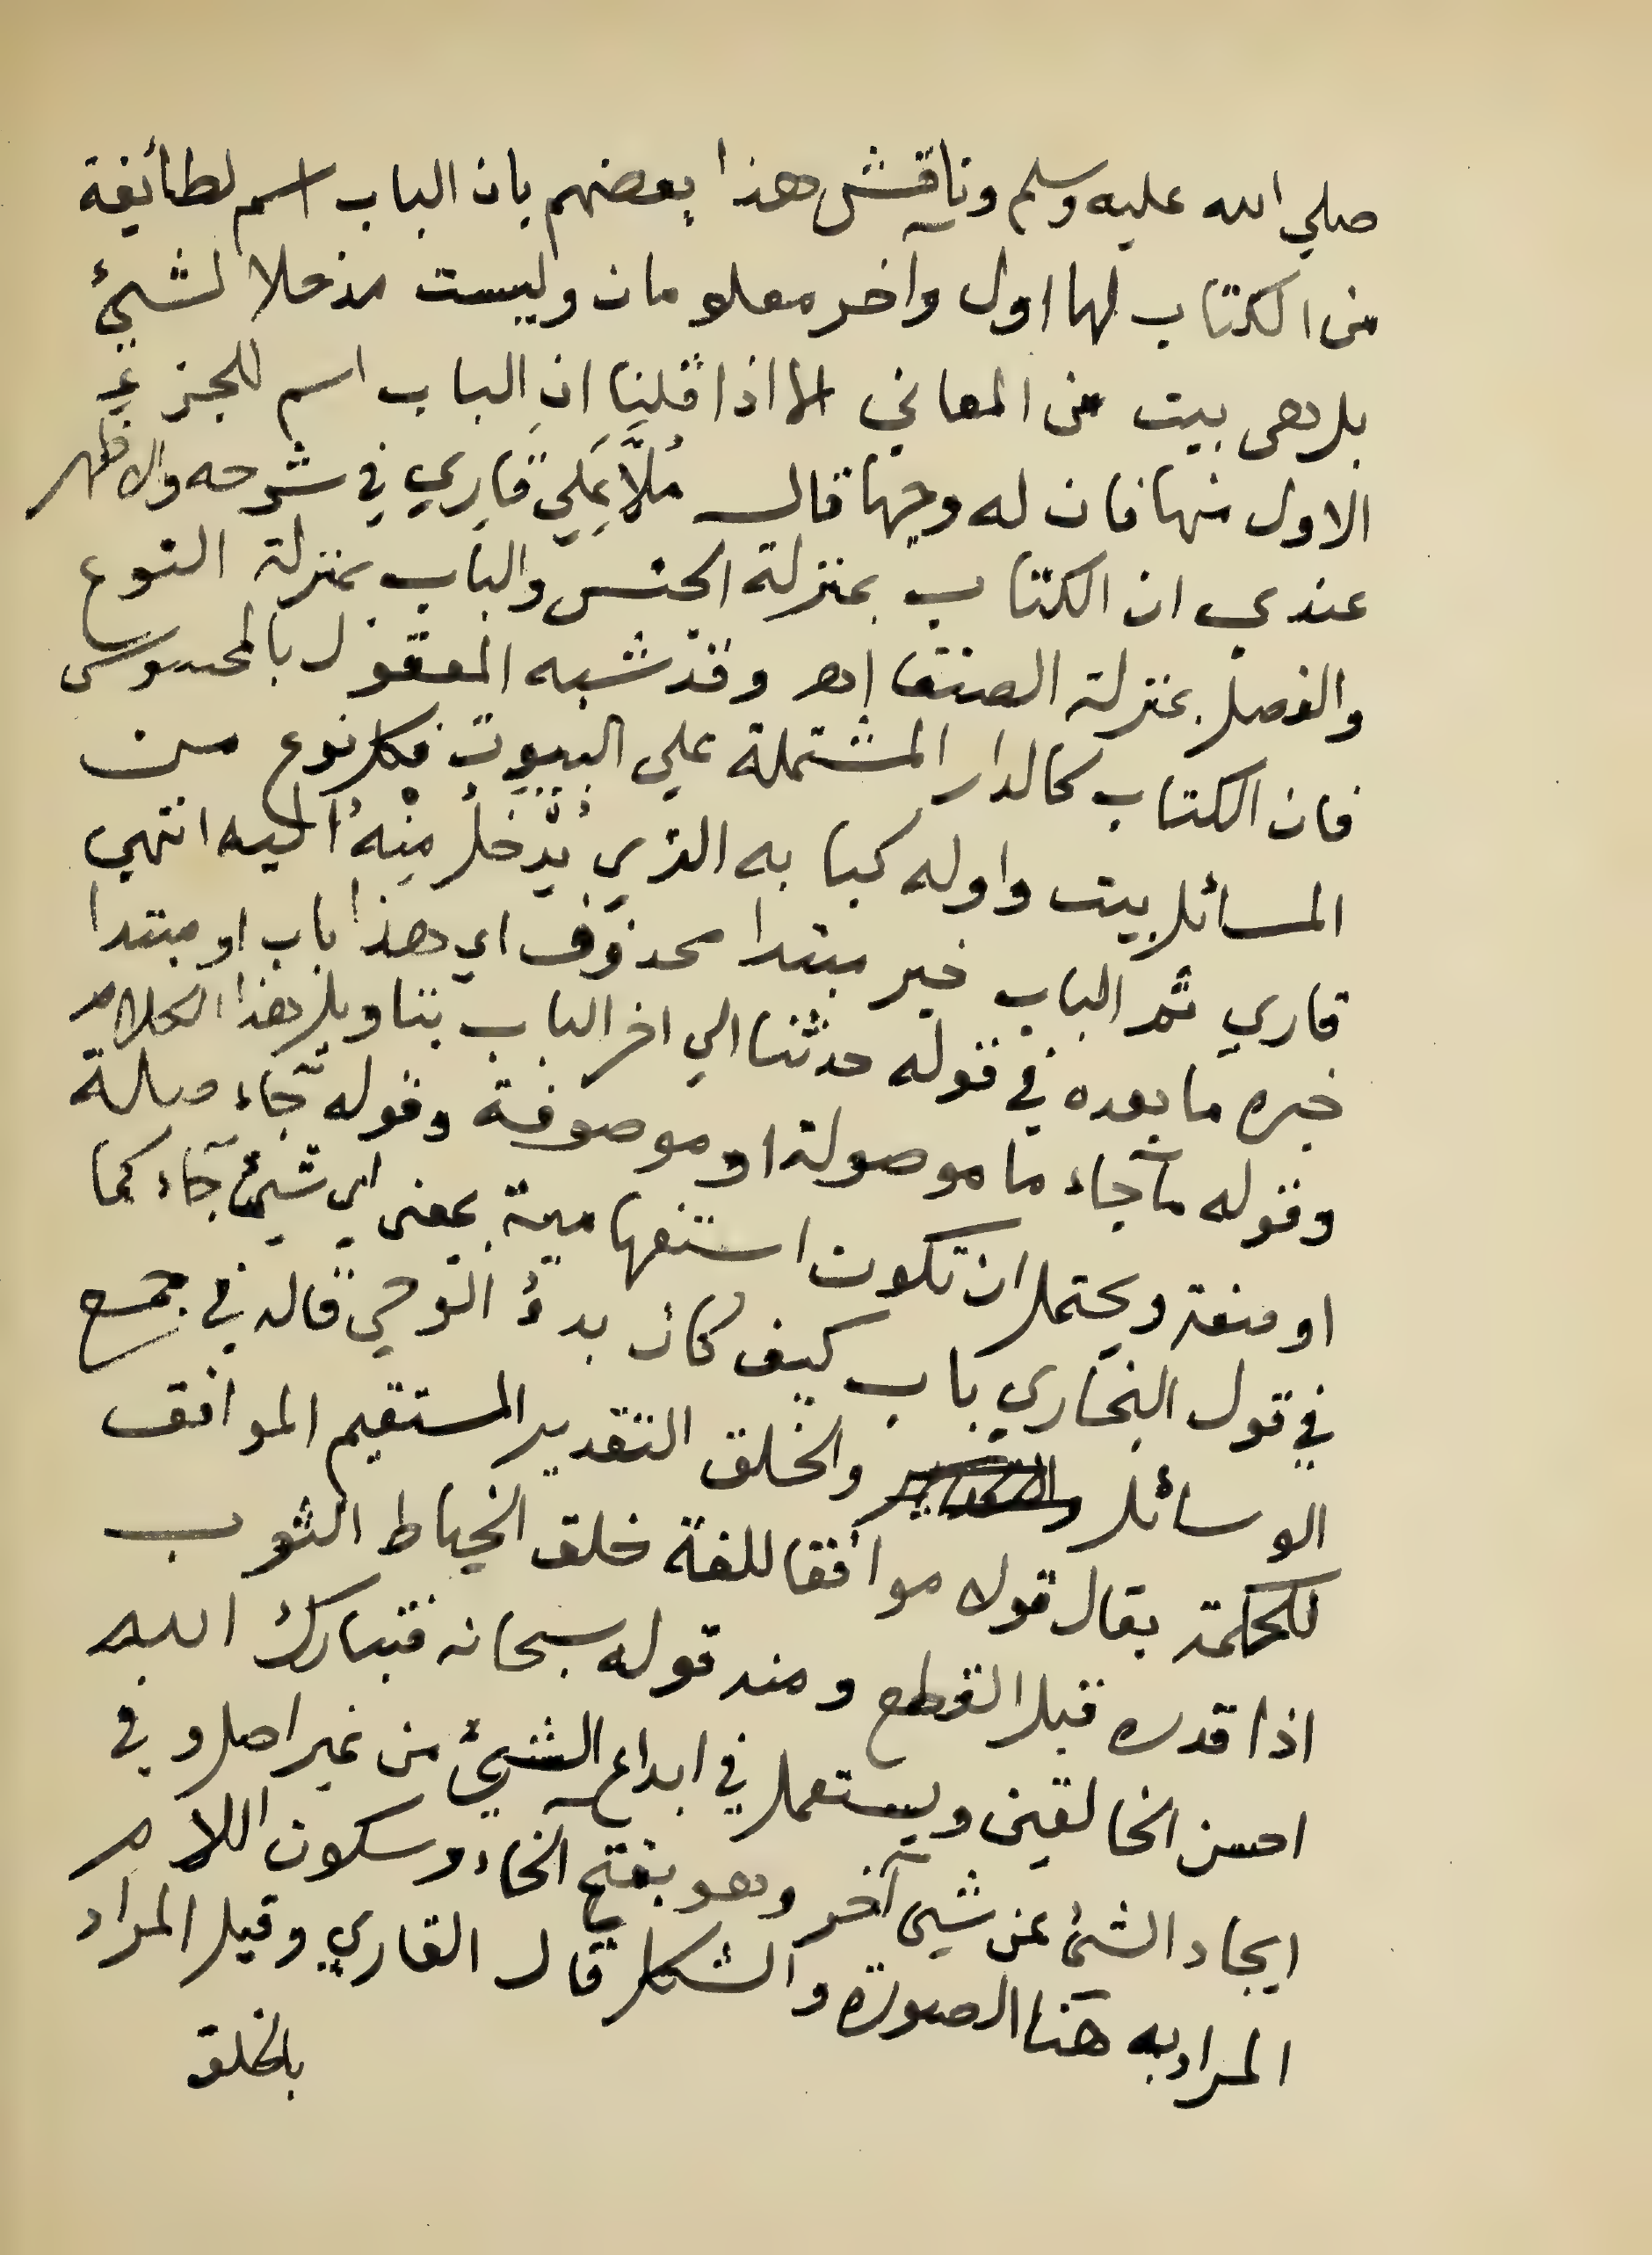 صلي الله عليه وسلم وناقش هذا بعضهم بان الباب اسم لطائفة
من الكتاب لها اول وآخر معلومان وليست مدخلا لشيئ
بل هى بيت من المعاني الا اذا قلنا ان الباب اسم للجزء
الاول منها فان له وجها قال مُلَّا عَلِي قارِي في شرحه والاظهر
عندي ان الكتاب بمنزلة الجنس والباب بمنزلة النوع
والفصل بمنزلة الصنف اهـ وقد شبه المعقول بالمحسوس
فان الكتاب كالدار المشتملة علي البيوت فكل نوع من
المسائل بيت واوله كبابه الذي يُدْخلُ مِنْهُ اليه انتهي
قاري ثم الباب خبر مبتدا محذوف اي هذا باب او مبتدا
خبره ما بعده في قوله حدثنا الي اخر الباب بتاويل هذا الكلام
وقوله مآجاء ما موصولة او موصوفة وقوله جآء صلة
او صفة ويحتمل ان تكون استفهامية بمعنى اي شيئ جآء كما
في قول البخاري باب كيف كان بدءُ الوحي قاله في جمع
الوسائل والخلق التقدير المستقيم الموافق
للحكمة يقال قولا موافقا للغة خلق الخياط الثوب
اذا قدره قبل القطع ومنه قوله سبحانه فتبارك الله
احسن الخالقين ويستعمل في ابداع الشيئ من غير اصل وفي
ايجاد الشئ عن شيى آخر وهو بفتح الخاء وسكون اللام
المراد به هنا الصورة والشكل قال القاري وقيل المراد
بالخلق